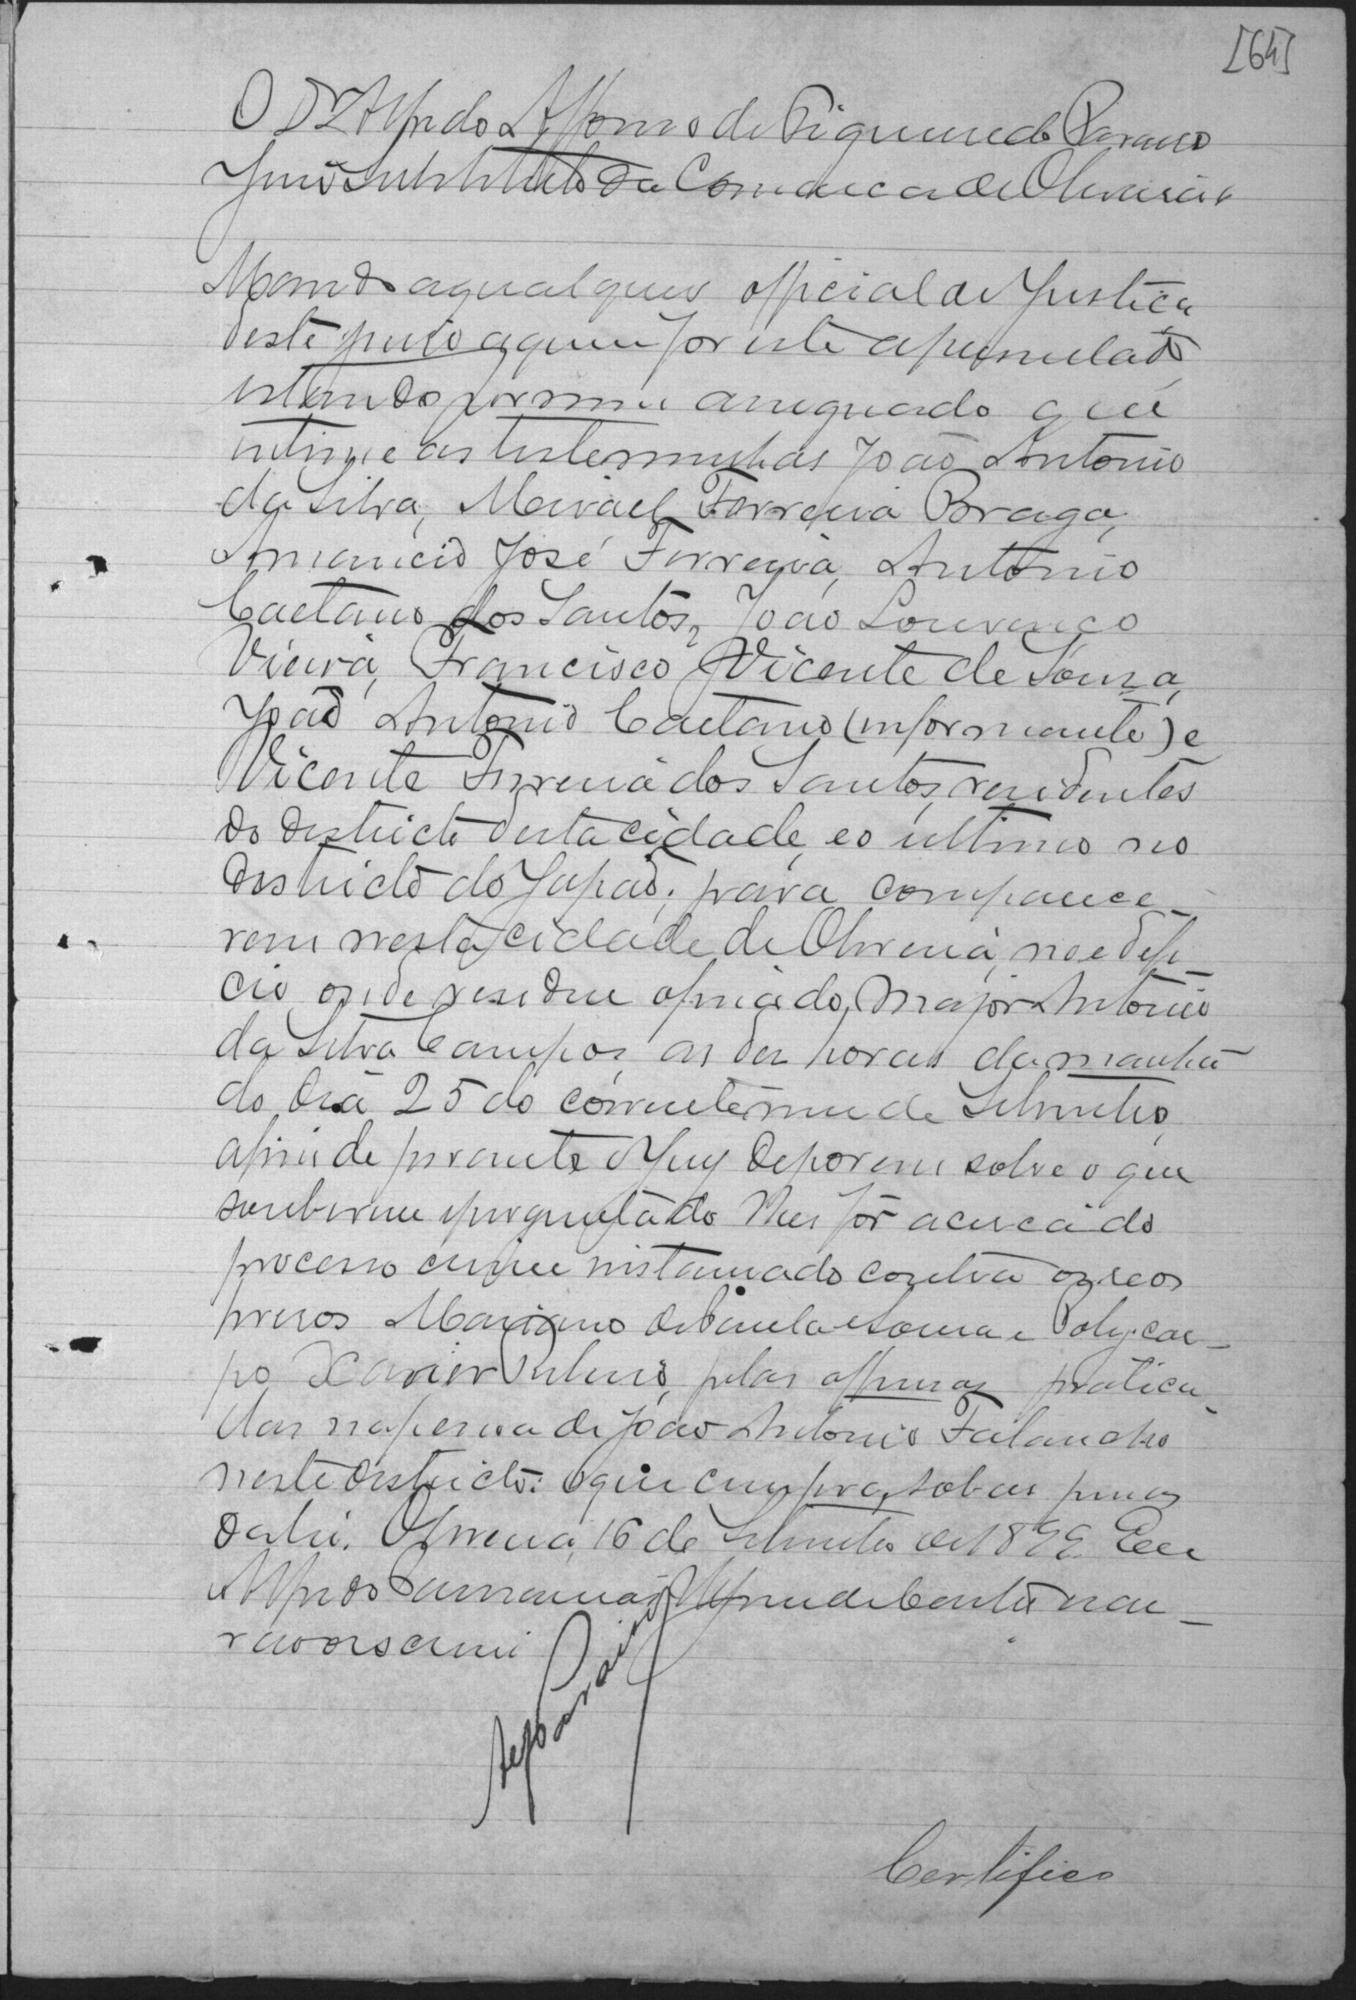 [64]
O Dr Alfredo Affonso de Figueiredo Paraiso
Juiz Substituto da Comarca de Oliveira
Mando a qualquer official de Justiça
deste juizo a quem for este apresentado
estando por mim assignado que
intime as testemunhas João Antonio
da Silva, Misael Ferreira Braga,
Amancio José Ferreira, Antonio
Caetano dos Santos, João Lourenço
Vieira, Francisco Vicente de Souza,
João Antonio Caetano (informante) e
Vicente Ferreira dos Santos, residentes
do districto desta cidade, e o ultimo no
Districto do Japão, para comparece-
rem nesta cidade de Oliveira, no edifi
cio onde reside o Major Antonio
da Silva Campos, as dez horas da manhã
do dia 25 do corrente mez de Setembro,
afim de perante o Juiz deporem sobre o que
souberem e perguntado lhes for acerca do
processo crime instaurado contra os reos
presos Mariano de Paula e Souza e Polycar-
po Xavier, pelas offensas pratica-
das na pessoa de João Antonio
neste districto: o que cumpra, sob as penas
da lei. Oliveira, 16 de Setembro de 1899 Eeu
Alfredo
Paraiso
Certifico